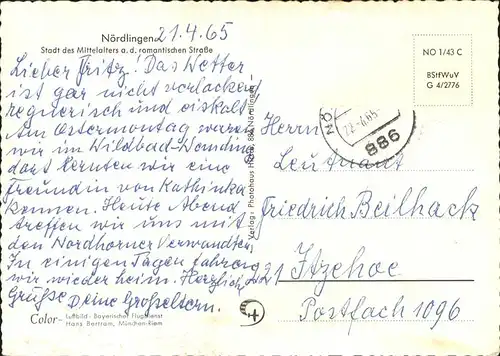 Nördlingen 21.4.65
Stadt des Mittelalters a. d. romantischen Straße
Lieber Fritz! Das Wetter
ist gar nicht verlockend
regnerisch und eiskalt
Am Ostermontag waren
wir im Wildbad-Wemding
dort lernten wir eine
Freundin von Kathinka
kennen. Heute Abend
treffen wir uns mit
den Nordhorner Verwandten
In einigen Tagen fahren
wir wieder heim. Herzliche
Grüße Deine Großeltern.
Color- Luftbild: Bayerischer Flugdienst
Hans Bertram, München-Riem
Verlag: Photohaus 886 Nördlingen
NO 1/43 C
BStfWuV
G 4/2776
NÖ
22.-4.65-
886
Herrn
Leutnant
Friedrich Beilhack
221 Itzehoe
Postfach 1096